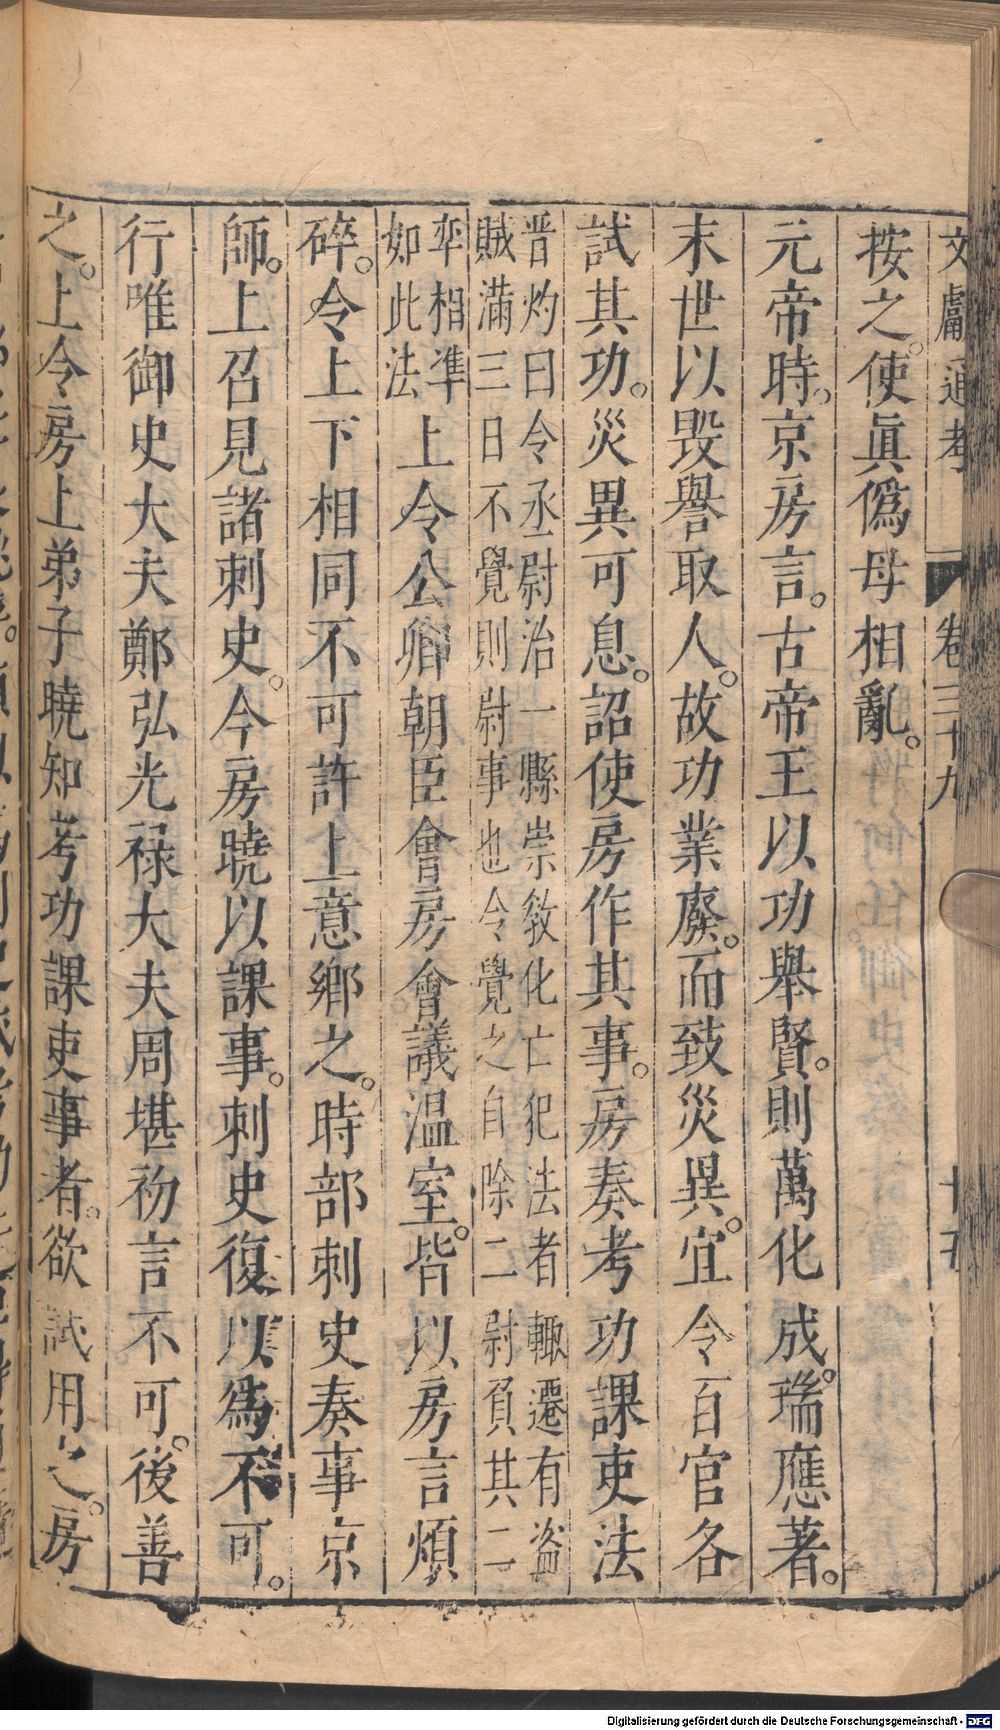 文獻通考 卷三十九 十五
按之。使眞僞母相亂。
元帝時。京房言。古帝王以功舉賢。則萬化成。瑞應著。
末世以毀譽取人。故功業廢。而致災異。宜令百官各
試其功。災異可息。詔使房作其事。房奏考功課吏法
晋灼曰令丞尉治一縣崇敎化亡犯法者輙遷有盗
賊滿三日不覺則尉事也令覺之自除二尉負其二
率相凖
如此法
上令公卿朝臣會房會議温室。皆以房言煩
碎。令上下相同不可許上意鄉之。時部刺史奏事京
師。上召見諸刺史。今房曉以課事。刺史復以爲不可。
行唯御史大夫鄭弘光禄大夫周堪初言不可。後善
之。上令房上弟子曉知考功課吏事者。欲試用之。房
Digitalisierung gefördert durch die Deutsche Forschungsgemeinschaft - DFG